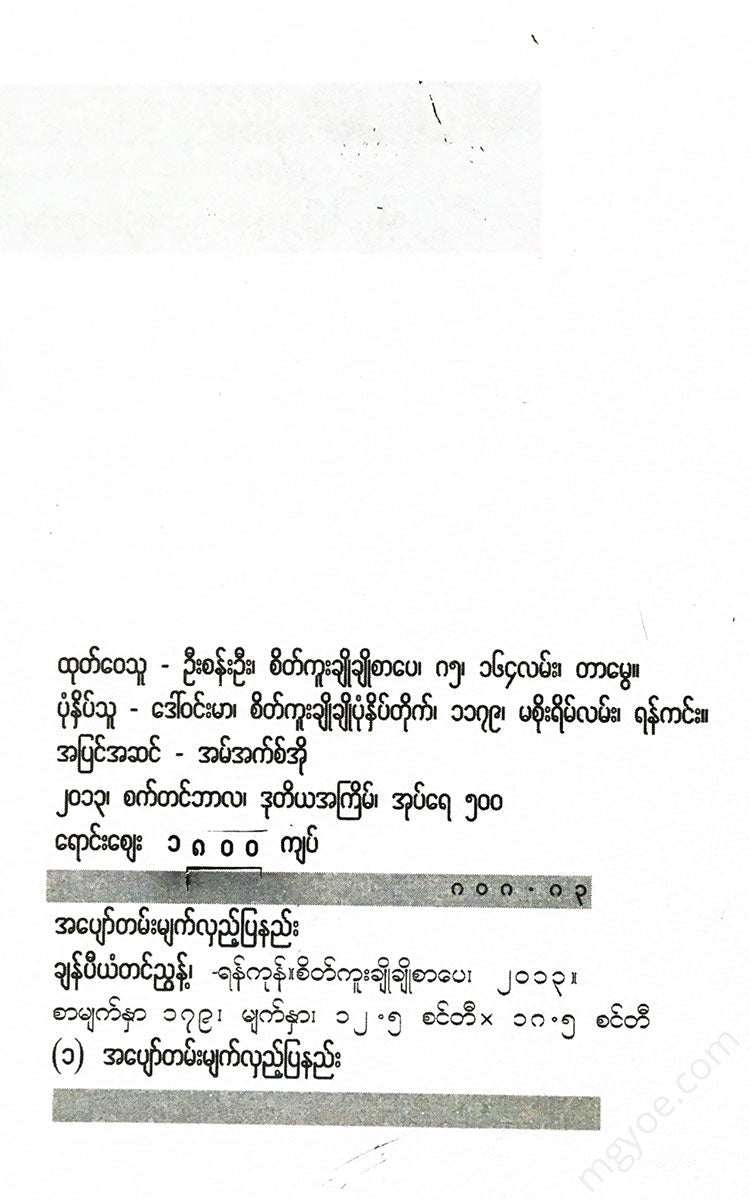 ထုတ်ဝေသူ - ဦးစန်းဦး၊ စိတ်ကူးချိုချိုစာပေ၊ ဂ၅၊ ၁၆၄လမ်း၊ တာမွေ။
ပုံနှိပ်သူ - ဒေါ်ဝင်းမာ၊ စိတ်ကူးချိုချိုပုံနှိပ်တိုက်၊ ၁၁၇၉၊ မစိုးရိမ်လမ်း၊ ရန်ကင်း။
အပြင်အဆင် - အမ်အက်စ်အို
၂၀၁၃၊ စက်တင်ဘာလ၊ ဒုတိယအကြိမ်၊ အုပ်ရေ ၅၀၀
ရောင်းဈေး ၁၈၀၀ ကျပ်
၈၀၈.၈၃
အပျော်တမ်းမျက်လှည့်ပြနည်း
ချန်ပီယံတင်ညွန့်၊ -ရန်ကုန်။စိတ်ကူးချိုချိုစာပေ၊ ၂၀၁၃။
စာမျက်နှာ ၁၇၉၊ မျက်နှာ၊ ၁၂.၅ စင်တီ× ၁၈.၅ စင်တီ
(၁) အပျော်တမ်းမျက်လှည့်ပြနည်း
mgyoe.com